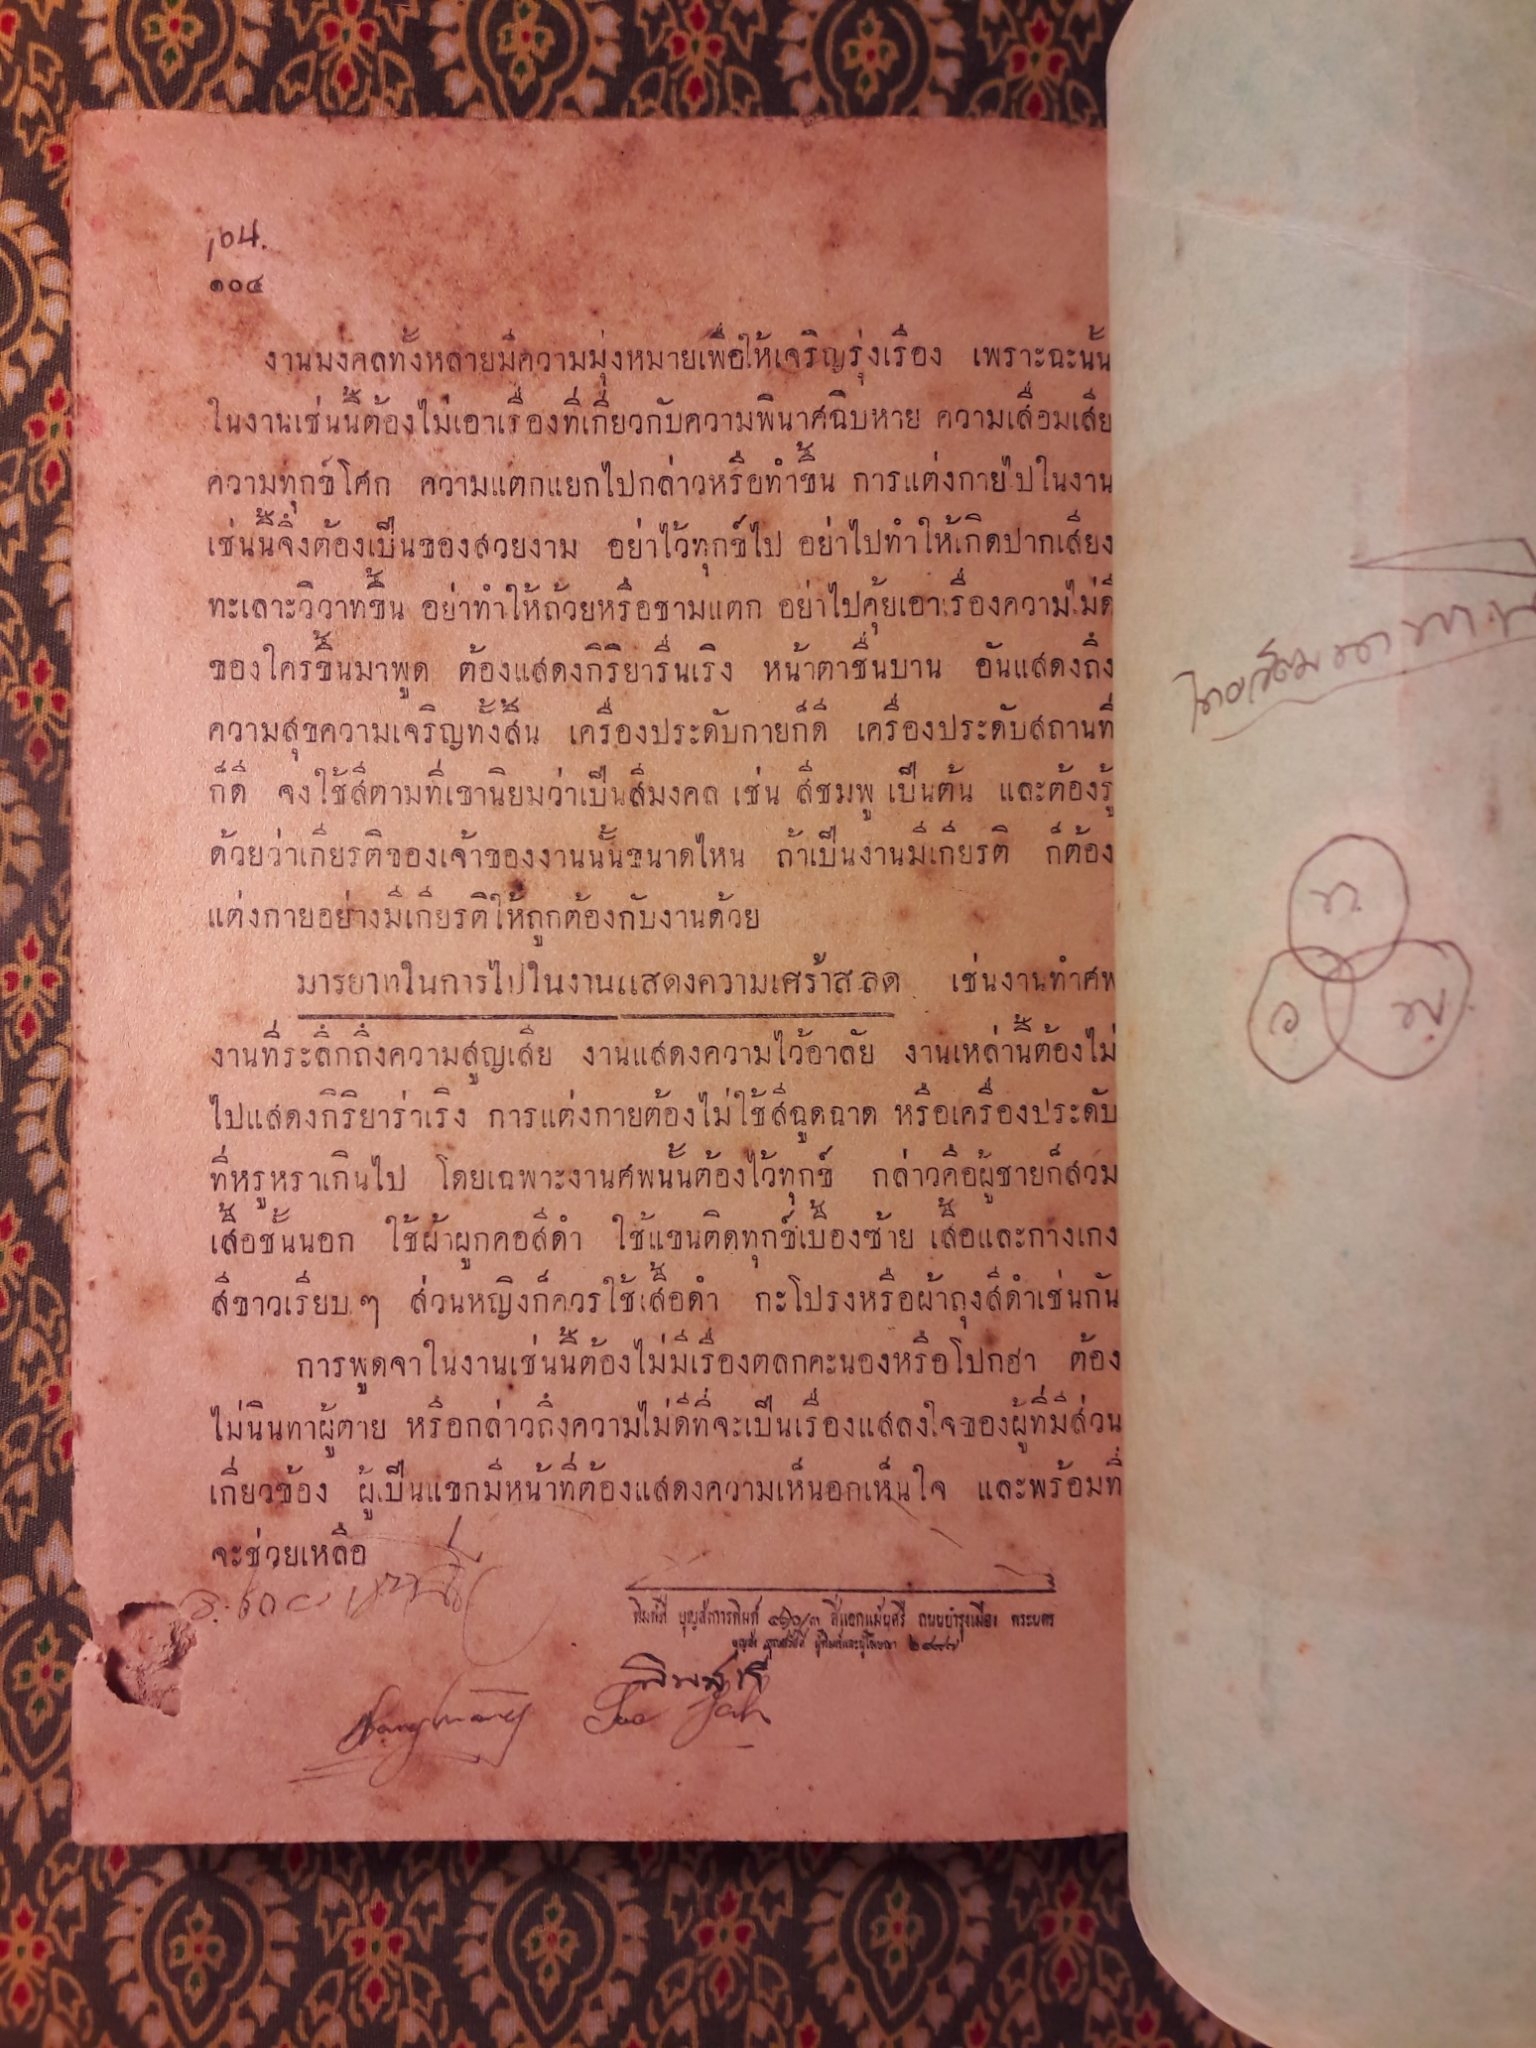 104.
๑๐๔
งานมงคลทั้งหลายมีความมุ่งหมายเพื่อให้เจริญรุ่งเรือง เพราะฉะนั้น
ในงานเช่นนี้ต้องไม่เอาเรื่องที่เกี่ยวกับความพินาศฉิบหาย ความเสื่อมเสีย
ความทุกข์โศก ความแตกแยกไปกล่าวหรือทำขึ้น การแต่งกายไปในงาน
เช่นนี้จึงต้องเป็นของสวยงาม อย่าไว้ทุกข์ไป อย่าไปทำให้เกิดปากเสียง
ทะเลาะวิวาทขึ้น อย่าทำให้ถ้วยหรือชามแตก อย่าไปคุ้ยเอาเรื่องความไม่ดี
ของใครขึ้นมาพูด ต้องแสดงกิริยารื่นเริง หน้าตาชื่นบาน อันแสดงถึง
ความสุขความเจริญทั้งสิ้น เครื่องประดับกายก็ดี เครื่องประดับสถานที่
ก็ดี จงใช้สีตามที่เขานิยมว่าเป็นสีมงคล เช่น สีชมพู เป็นต้น และต้องรู้
ด้วยว่าเกียรติของเจ้าของงานนั้นขนาดไหน ถ้าเป็นงานมีเกียรติ ก็ต้อง
แต่งกายอย่างมีเกียรติให้ถูกต้องกับงานด้วย
มารยาทในการไปในงานแสดงความเศร้าสลด เช่นงานทำศพ
งานที่ระลึกถึงความสูญเสีย งานแสดงความไว้อาลัย งานเหล่านี้ต้องไม่
ไปแสดงกิริยาร่าเริง การแต่งกายต้องไม่ใช้สีฉูดฉาด หรือเครื่องประดับ
ที่หรูหราเกินไป โดยเฉพาะงานศพนั้นต้องไว้ทุกข์ กล่าวคือผู้ชายก็สวม
เสื้อชั้นนอก ใช้ผ้าผูกคอสีดำ ใช้แขนติดทุกข์เบื้องซ้าย เสื้อและกางเกง
สีขาวเรียบ ๆ ส่วนหญิงก็ควรใช้เสื้อดำ กะโปรงหรือผ้าถุงสีดำเช่นกัน
การพูดจาในงานเช่นนี้ต้องไม่มีเรื่องตลกคะนองหรือโปกฮา ต้อง
ไม่นินทาผู้ตาย หรือกล่าวถึงความไม่ดีที่จะเป็นเรื่องแสลงใจของผู้ที่มีส่วน
เกี่ยวข้อง ผู้เป็นแขกมีหน้าที่ต้องแสดงความเห็นอกเห็นใจ และพร้อมที่
จะช่วยเหลือ
พิมพ์ที่ บุญส่งการพิมพ์ สี่แยกแม้นศรี ถนนบำรุงเมือง พระนคร
บุญส่ง ผู้พิมพ์และผู้โฆษณา